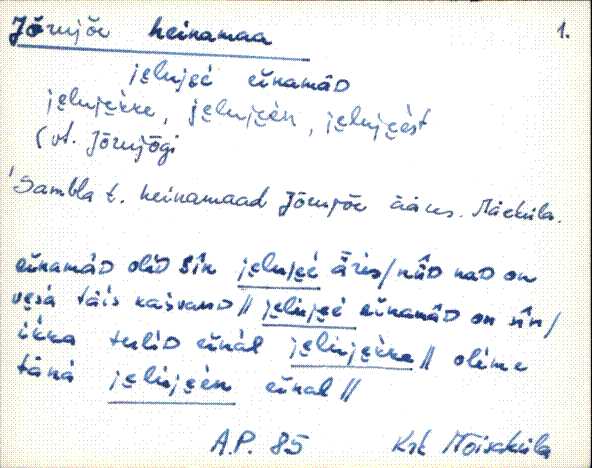 Jõrujõe heinamaa 1.
je̮luje̮é eìnamāD
je̮luje̮èkke, je̮luje̮èn, je̮luje̮èst
(vt. Jõrujõgi
'Sambla t. heinamaad Jõrujõe ääres. Mäeküla.
eìnamāD oliD sīn je̮luje̮é ä̀rès/nǖD naD on
ve̮sà täis kasvanD // je̮luje̮é eìnamāD on sīn/
ikka tuliD eìnàl je̮luje̮èkke // olime
tänà je̮luje̮èn eìnal //
A.P. 85 Krk Mõisaküla